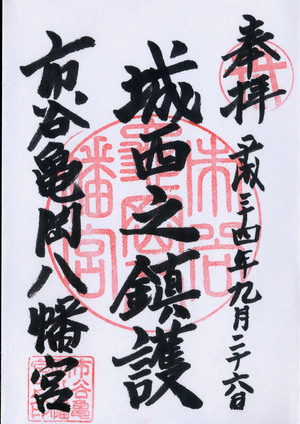 奉拝
平成二十四年九月二十六日
城西之鎮護
市谷亀岡八幡宮